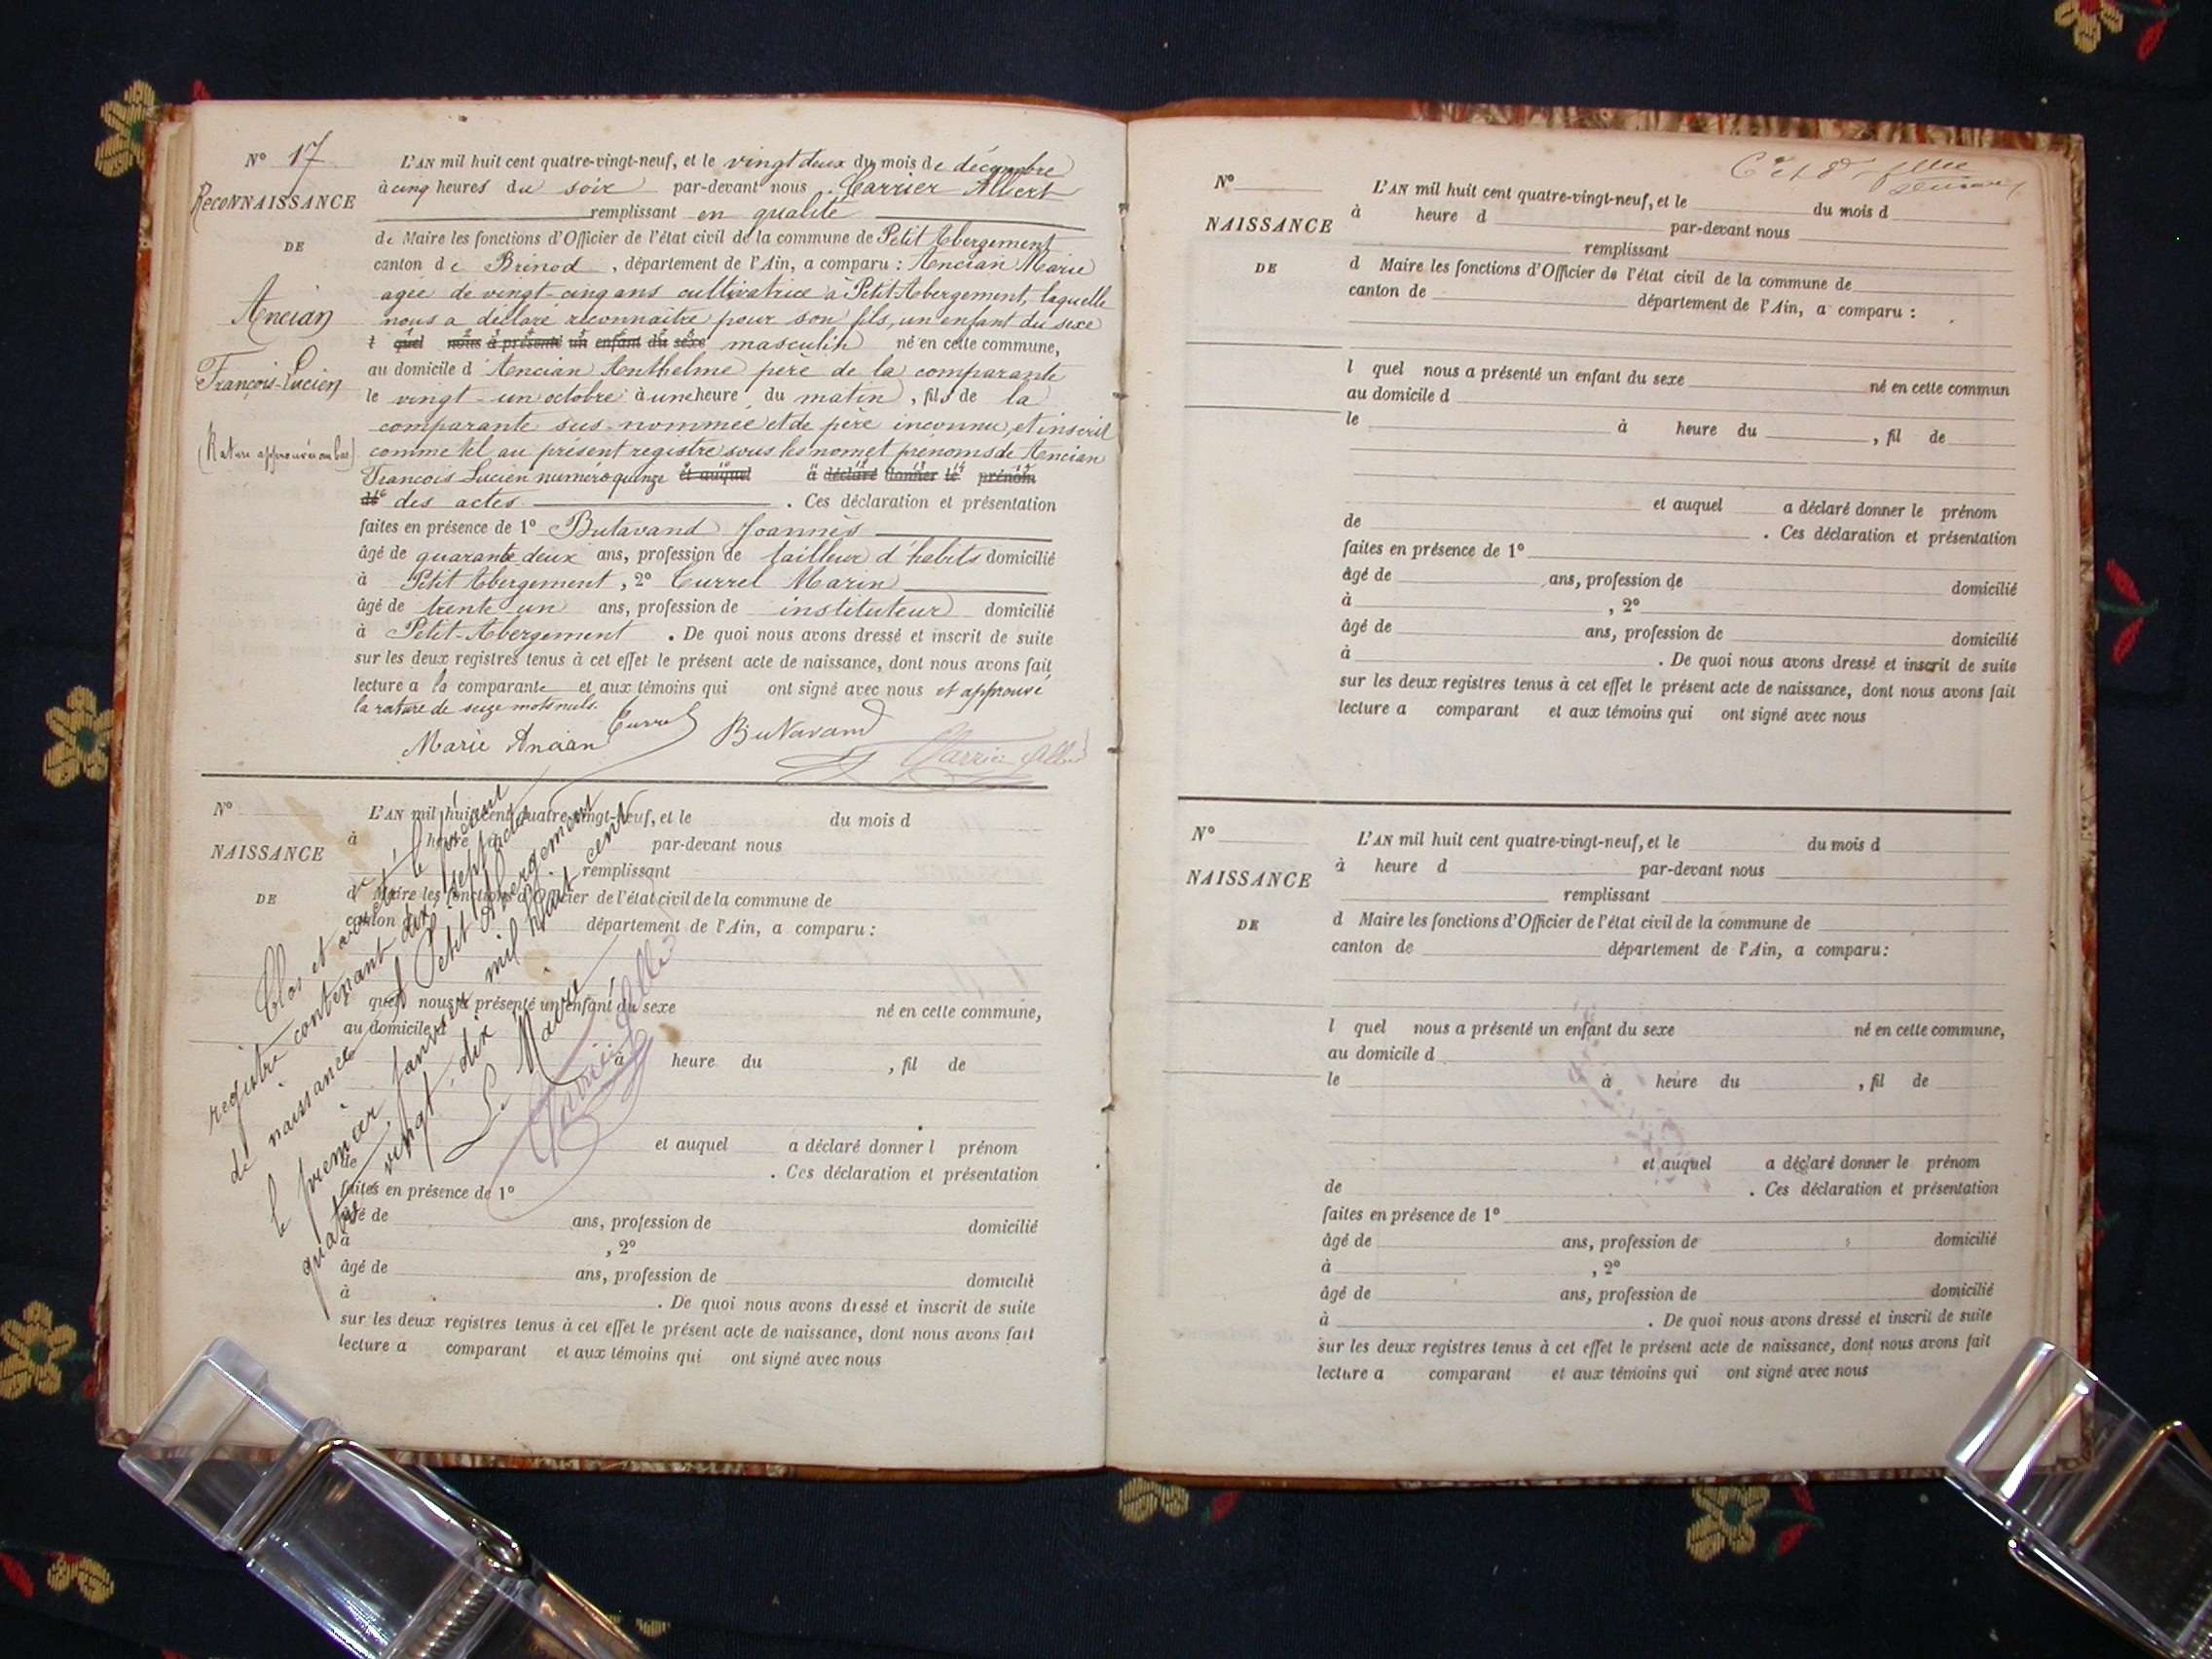 N° 17
RECONNAISSANCE
DE
Ancian
François-Lucien
(Rature approuvée au bas)
L'AN mil huit cent quatre-vingt-neuf, et le vingt deux du mois de décembre
à cinq heures du soir par-devant nous Carrier Albert
remplissant en qualité
de Maire les fonctions d'Officier de l'état civil de la commune de Petit Abergement
canton de Brénod, département de l'Ain, a comparu : Ancian Marie
agée de vingt-cinq ans cultivatrice à Petit Abergement, laquelle
nous a déclaré reconnaitre pour son fils, un enfant du sexe
l quel nous a présenté un enfant du sexe masculin né en cette commune,
au domicile d'Ancian Anthelme père de la comparante
le vingt-un octobre à une heure du matin, fils de la
comparante sus-nommée et de père inconnu, et inscrit
comme tel au présent registre sous les nom et prénoms de Ancian
François Lucien numéro quinze et auquel a déclaré donner le prénom
de des actes. Ces déclaration et présentation
faites en présence de 1° Butavand Joannès
âgé de quarante deux ans, profession de tailleur d'habits domicilié
à Petit Abergement, 2° Currel Marin
âgé de trente un ans, profession de instituteur domicilié
à Petit-Abergement. De quoi nous avons dressé et inscrit de suite
sur les deux registres tenus à cet effet le présent acte de naissance, dont nous avons fait
lecture a la comparante et aux témoins qui ont signé avec nous et approuvé
la rature de seize mots nuls.
Marie Ancian Currel Butavand Carrier Albert
N°
NAISSANCE
DE
L'AN mil huit cent quatre-vingt-neuf, et le du mois d
à heure d par-devant nous
remplissant
d Maire les fonctions d'Officier de l'état civil de la commune de
canton de département de l'Ain, a comparu :
quel nous a présenté un enfant du sexe né en cette commune,
au domicile d
à heure du , fil de
et auquel a déclaré donner l prénom
de . Ces déclaration et présentation
faites en présence de 1°
âgé de ans, profession de domicilié
à , 2°
âgé de ans, profession de domicilié
à . De quoi nous avons dressé et inscrit de suite
sur les deux registres tenus à cet effet le présent acte de naissance, dont nous avons fait
lecture a comparant et aux témoins qui ont signé avec nous
Clos et arrêté le présent
registre contenant dix sept actes
de naissance à Petit Abergement
le premier janvier mil huit cent
quatre vingt dix
Le Maire
Carrier Albert
N°
NAISSANCE
DE
L'AN mil huit cent quatre-vingt-neuf, et le du mois d
à heure d par-devant nous
remplissant
d Maire les fonctions d'Officier de l'état civil de la commune de
canton de département de l'Ain, a comparu :
l quel nous a présenté un enfant du sexe né en cette commun
au domicile d
le à heure du , fil de
et auquel a déclaré donner le prénom
de . Ces déclaration et présentation
faites en présence de 1°
âgé de ans, profession de domicilié
à , 2°
âgé de ans, profession de domicilié
à . De quoi nous avons dressé et inscrit de suite
sur les deux registres tenus à cet effet le présent acte de naissance, dont nous avons fait
lecture a comparant et aux témoins qui ont signé avec nous
N°
NAISSANCE
DE
L'AN mil huit cent quatre-vingt-neuf, et le du mois d
à heure d par-devant nous
remplissant
d Maire les fonctions d'Officier de l'état civil de la commune de
canton de département de l'Ain, a comparu :
l quel nous a présenté un enfant du sexe né en cette commune,
au domicile d
le à heure du , fil de
et auquel a déclaré donner le prénom
de . Ces déclaration et présentation
faites en présence de 1°
âgé de ans, profession de domicilié
à , 2°
âgé de ans, profession de domicilié
à . De quoi nous avons dressé et inscrit de suite
sur les deux registres tenus à cet effet le présent acte de naissance, dont nous avons fait
lecture a comparant et aux témoins qui ont signé avec nous